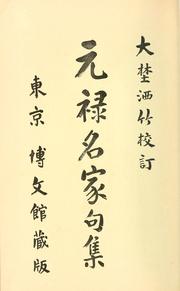 大埜洒竹校訂
元禄名家句集
東京博文館蔵版